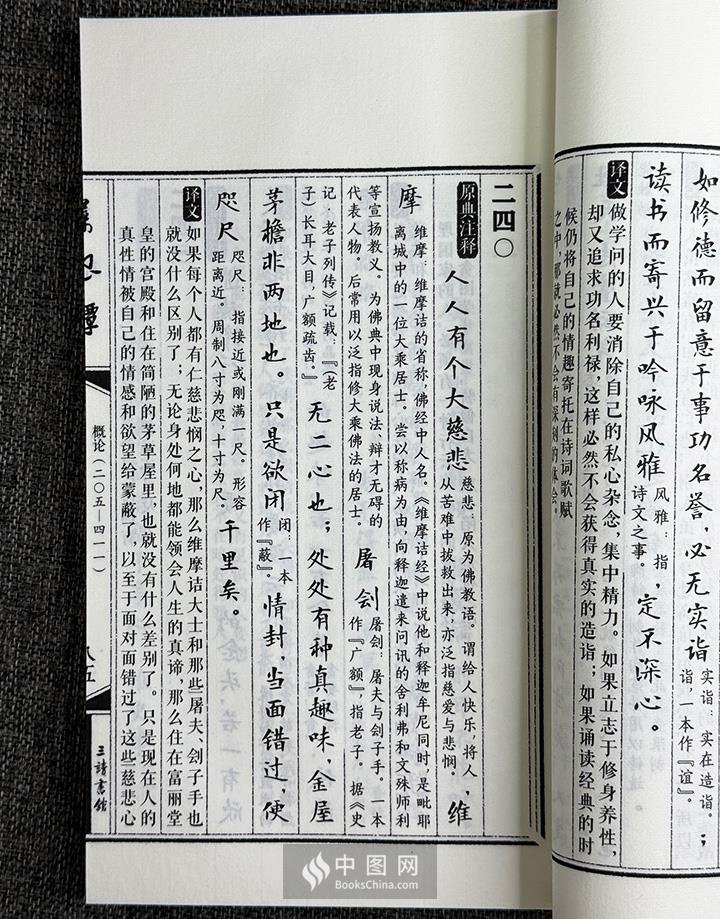 如修德而留意于事功名誉，必无实诣
实诣：实在造诣。
诣，一本作『谊』。
；
读书而寄兴于吟咏风雅
风雅：指
诗文之事。
，定不深心。
译文
做学问的人要消除自己的私心杂念，集中精力。如果立志于修身养性，
却又追求功名利禄，这样必然不会获得真实的造诣；如果诵读经典的时
候仍将自己的情趣寄托在诗词歌赋
之中，那就必然不会有深刻的体会。
二四〇
原典注释
人人有个大慈悲
慈悲：原为佛教语。谓给人快乐，将人
从苦难中拔救出来，亦泛指慈爱与悲悯。
，维
摩
维摩：维摩诘的省称，佛经中人名。《维摩诘经》中说他和释迦牟尼同时，是毗耶
离城中的一位大乘居士。尝以称病为由，向释迦遣来问讯的舍利弗和文殊师利
等宣扬教义。为佛典中现身说法、辩才无碍的
代表人物。后常用以泛指修大乘佛法的居士。
屠刽
屠刽：屠夫与刽子手。一本
作『广额』，指老子。据《史
记·老子列传》记载：『（老
子）长耳大目，广额疏齿。』
无二心也；处处有种真趣味，金屋
茅檐非两地也。只是欲闭
闭：一本
作『蔽』。
情封，当面错过，便
咫尺
咫尺：指接近或刚满一尺。形容
距离近。周制八寸为咫，十寸为尺。
千里矣。
译文
如果每个人都有仁慈悲悯之心，那么维摩诘大士和那些屠夫、刽子手也
就没什么区别了；无论身处何地都能领会人生的真谛，那么住在富丽堂
皇的宫殿和住在简陋的茅草屋里，也就没有什么差别了。只是现在人的
真性情被自己的情感和欲望给蒙蔽了，以至于面对面错过了这些慈悲心
概论（二〇五—四一一）
八五
三读书馆
中图网
BooksChina.com